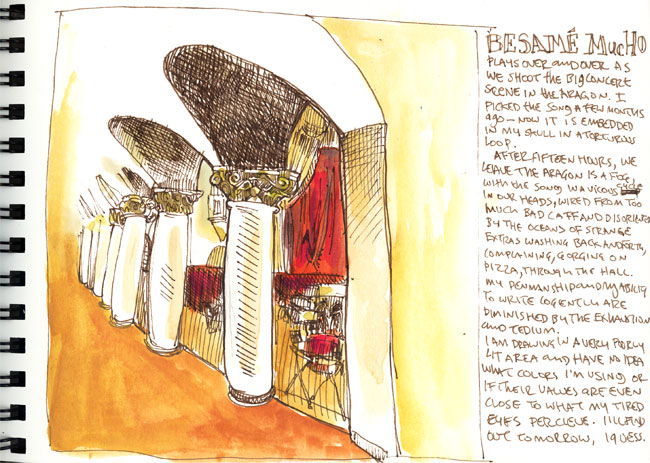 BESAMÉ MUCHO
PLAYS OVER AND OVER AS
WE SHOOT THE BIG CONCERT
SCENE IN THE ARAGON. I
PICKED THE SONG A FEW MONTHS
AGO – NOW IT IS EMBEDDED
IN MY SKULL IN A TORTUROUS
LOOP.
AFTER FIFTEEN HOURS, WE
LEAVE THE ARAGON IS A FOG
WITH THE SONG IN A VICIOUS
IN OUR HEADS, WIRED FROM TOO
MUCH BAD CAFF AND DISORIENTED
BY THE OCEANS OF STRANGE
EXTRAS WASHING BACK AND FORTH,
COMPLAINING, GORGING ON
PIZZA, THROUGH THE HALL.
MY PENMANSHIP AND MY ABILITY
TO WRITE COGENTLY ARE
DIMINISHED BY THE EXHAUSTION
AND TEDIUM.
I AM DRAWING IN A VERY POORLY
LIT AREA AND HAVE NO IDEA
WHAT COLORS I'M USING OR
IF THEIR VALUES ARE EVEN
CLOSE TO WHAT MY TIRED
EYES PERCIEVE. I'LL FIND
OUT TOMORROW, I GUESS.